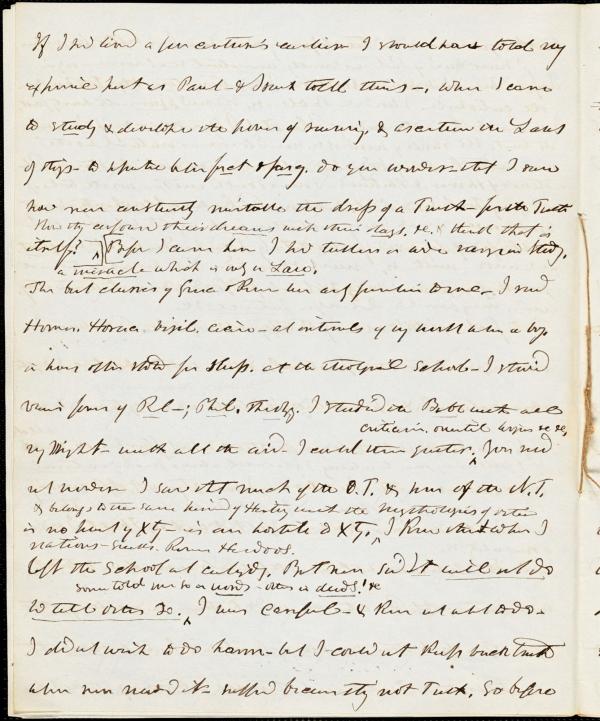 If I had lived a few centuries earlier I should have told my
experience just as Paul - & Isaiah told theirs -. When I came
to study & develope the power of reasoning & ascertain the Laws
of things - to separate between fact & fancy. do you wonder that I saw
how men constantly mistake the dress of a Truth - for the Truth
How they confound their dreams with their days, &c. & think that is
itself? Before I came here I had taken a wide range in Study.
a miracle which is only a Law.
The best classics of Greece & Rome were familiar to me - I read
Homer. Horace. Virgil. Cicero - at intervals of my work when a boy
in hours often stolen for sleep. at the theological School - I studied
various forms of Rel -; Phil. Theology. I studied the Bible with all
criticism, oriental &c &c,
my Might - with all the aid I could there gather. You need
not wonder I saw that much of the O.T. & some of the N.T.
& belongs to the same kind of History with the Mythologies of other
is no part of Xty - is even hostile to Xty. I knew that when I
nations - Greeks. Romans Hindoos.
left the School at Cambridge. But men said It will not do
some told me so in words - others in deeds! &c
to tell others so. I was careful - & knew not what to do -
I did not wish to do harm - but I could not keep back truth
when men needed it - suffered because they had not Truth. So before